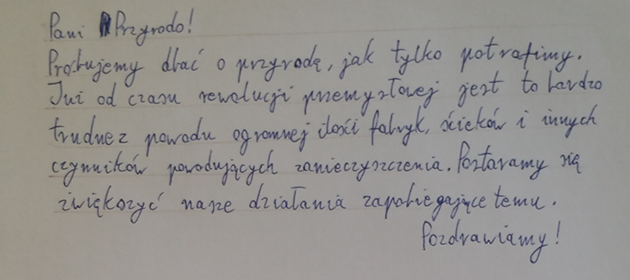 Pani Przyrodo!
Próbujemy dbać o przyrodę, jak tylko potrafimy.
Już od czasu rewolucji przemysłowej jest to bardzo
trudne z powodu ogromnej ilości fabryk, ścieków i innych
czynników powodujących zanieczyszczenia. Postaramy się
zwiększyć nasze działania zapobiegające temu.
Pozdrawiamy!